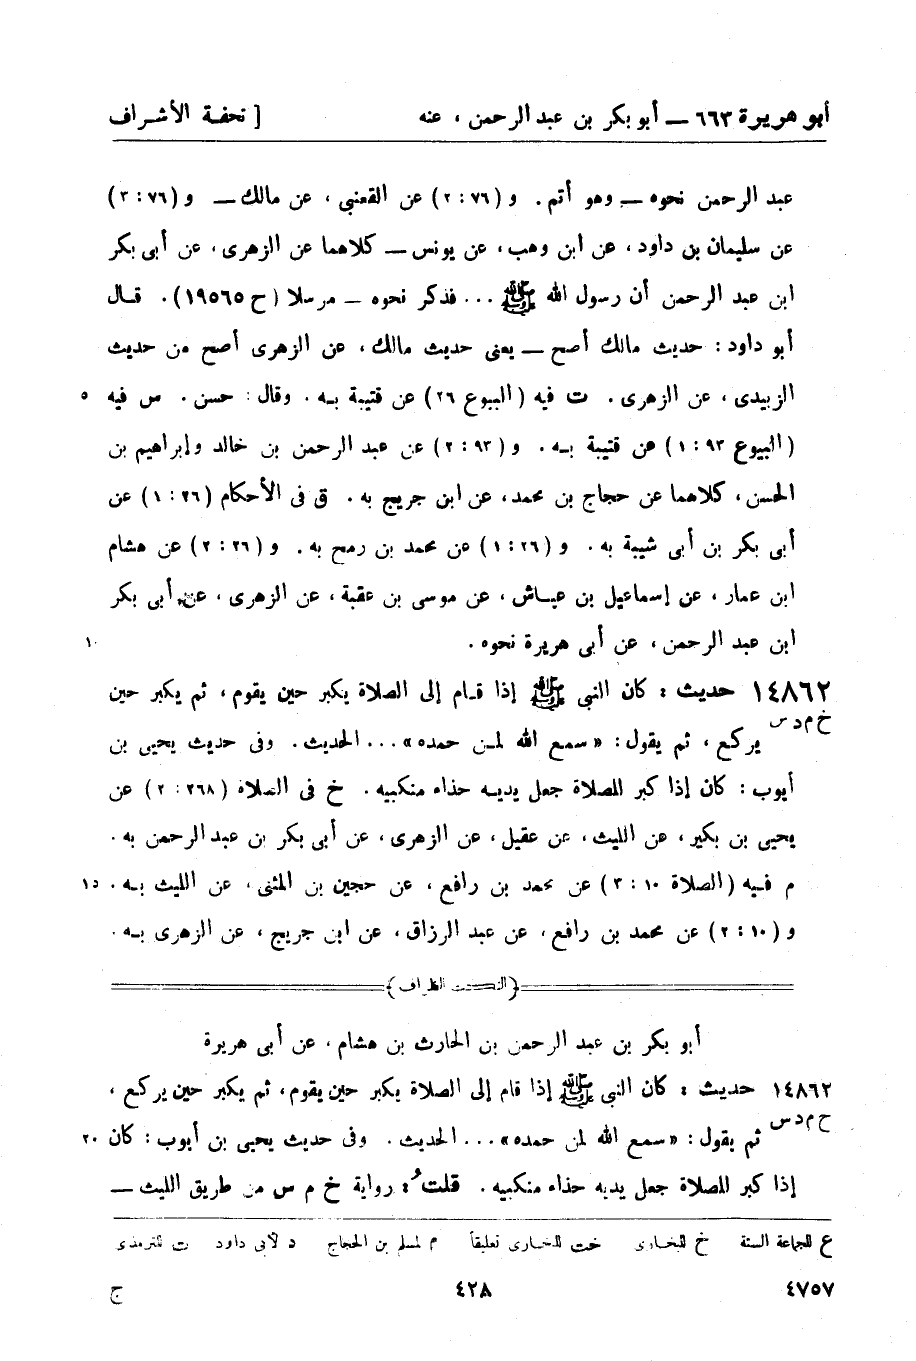 أبو هريرة ٦٦٣ — أبو بكر بن عبد الرحمن ، عنه [ تحفة الأشراف
عبد الرحمن نحوه — وهو أتم . و (٧٦ : ٢) عن القعنبي ، عن مالك — و (٧٦ : ٣)
عن سليمان بن داود ، عن ابن وهب، عن يونس — كلاهما عن الزهرى ، عن أبى بكر
ابن عبد الرحمن أن رسول الله ﷺ ... فذكر نحوه — مرسلا (ح ١٩٥٦٥) . قـال
أبو داود : حديث مالك أصح — يعنى حديث مالك ، عن الزهرى أصح من حديث
الزبيدى ، عن الزهرى . ت فيه (البيوع ٢٦) عن قتيبة بـه . وقال : حسن . س فيه ٥
(البيوع ٩٣ : ١) عن قتيبة بـه . و (٩٣ : ٢) عن عبد الرحمن بن خالد وإبراهيم بن
الحسن ، كلاهما عن حجاج بن محمد، عن ابن جريج به . ق فى الأحكام (٢٦ : ١) عن
أبى بكر بن أبى شيبة به . و (٢٦ : ١) عن محمد بن رمح به . و (٢٦ : ٢) عن هشام
ابن عمار ، عن إسماعيل بن عيـاش ، عن موسى بن عقبة ، عن الزهرى ، عن أبى بكر
ابن عبد الرحمن ، عن أبى هريرة نحوه . ١٠
١٤٨٦٢ حديث : كان النبى ﷺ إذا قـام إلى الصلاة يكبر حين يقوم ، ثم يكبر حين
خ م د س يركع ، ثم يقول : «سمع الله لمـن حمده» ... الحديث . وفى حديث يحيى بن
أيوب : كان إذا كبر للصلاة جعل يديـه حذاء منكبيه . خ فى الصلاة (٢٦٨ : ٢) عن
يحيى بن بكير ، عن الليث، عن عقيل ، عن الزهرى ، عن أبى بكر بن عبد الرحمن به .
م فـيه (الصلاة ١٠ : ٣) عن محمد بن رافع ، عن حجين بن المثنى ، عن الليث بـه . ١٥
و (١٠ : ٢) عن محمد بن رافع ، عن عبد الرزاق ، عن ابن جريج ، عن الزهرى بـه .
(النكت الظراف)
أبو بكر بن عبد الرحمن بن الحارث بن هشام ، عن أبى هريرة
١٤٨٦٢ حديث : كان النبى ﷺ إذا قام إلى الصلاة يكبر حين يقوم ، ثم يكبر حين يركع ،
خ م د س ثم يقول : «سمع الله لمن حمده» ... الحديث . وفى حديث يحيى بن أيوب : كان ٢٠
إذا كبر للصلاة جعل يديه حذاء منكبيه . قلت : رواية خ م س من طريق الليث —
ع للجماعة الستة خ للبخـارى خت للبخـارى تعليقاً م لمسلم بن الحجاج د لأبى داود ت للترمذى
٤٧٥٧ ٤٢٨ ج